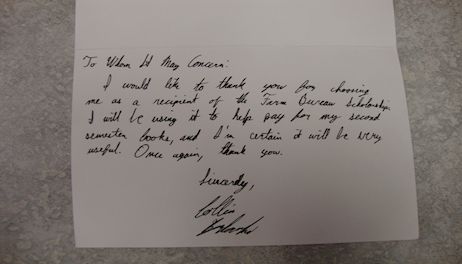 To Whom It May Concern:
I would like to thank you for choosing
me as a recipient of the Farm Bureau Scholarship.
I will be using it to help pay for my second
semester books, and I'm certain it will be very
useful. Once again, thank you.
Sincerely,
Collin